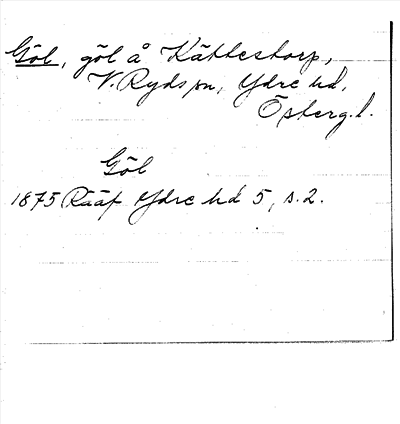 Göl, göl å Kättestorp,
V. Ryds sn, Ydre hd,
Östergl.
Göl
1875 Rääf Ydre hd 5, s. 2.